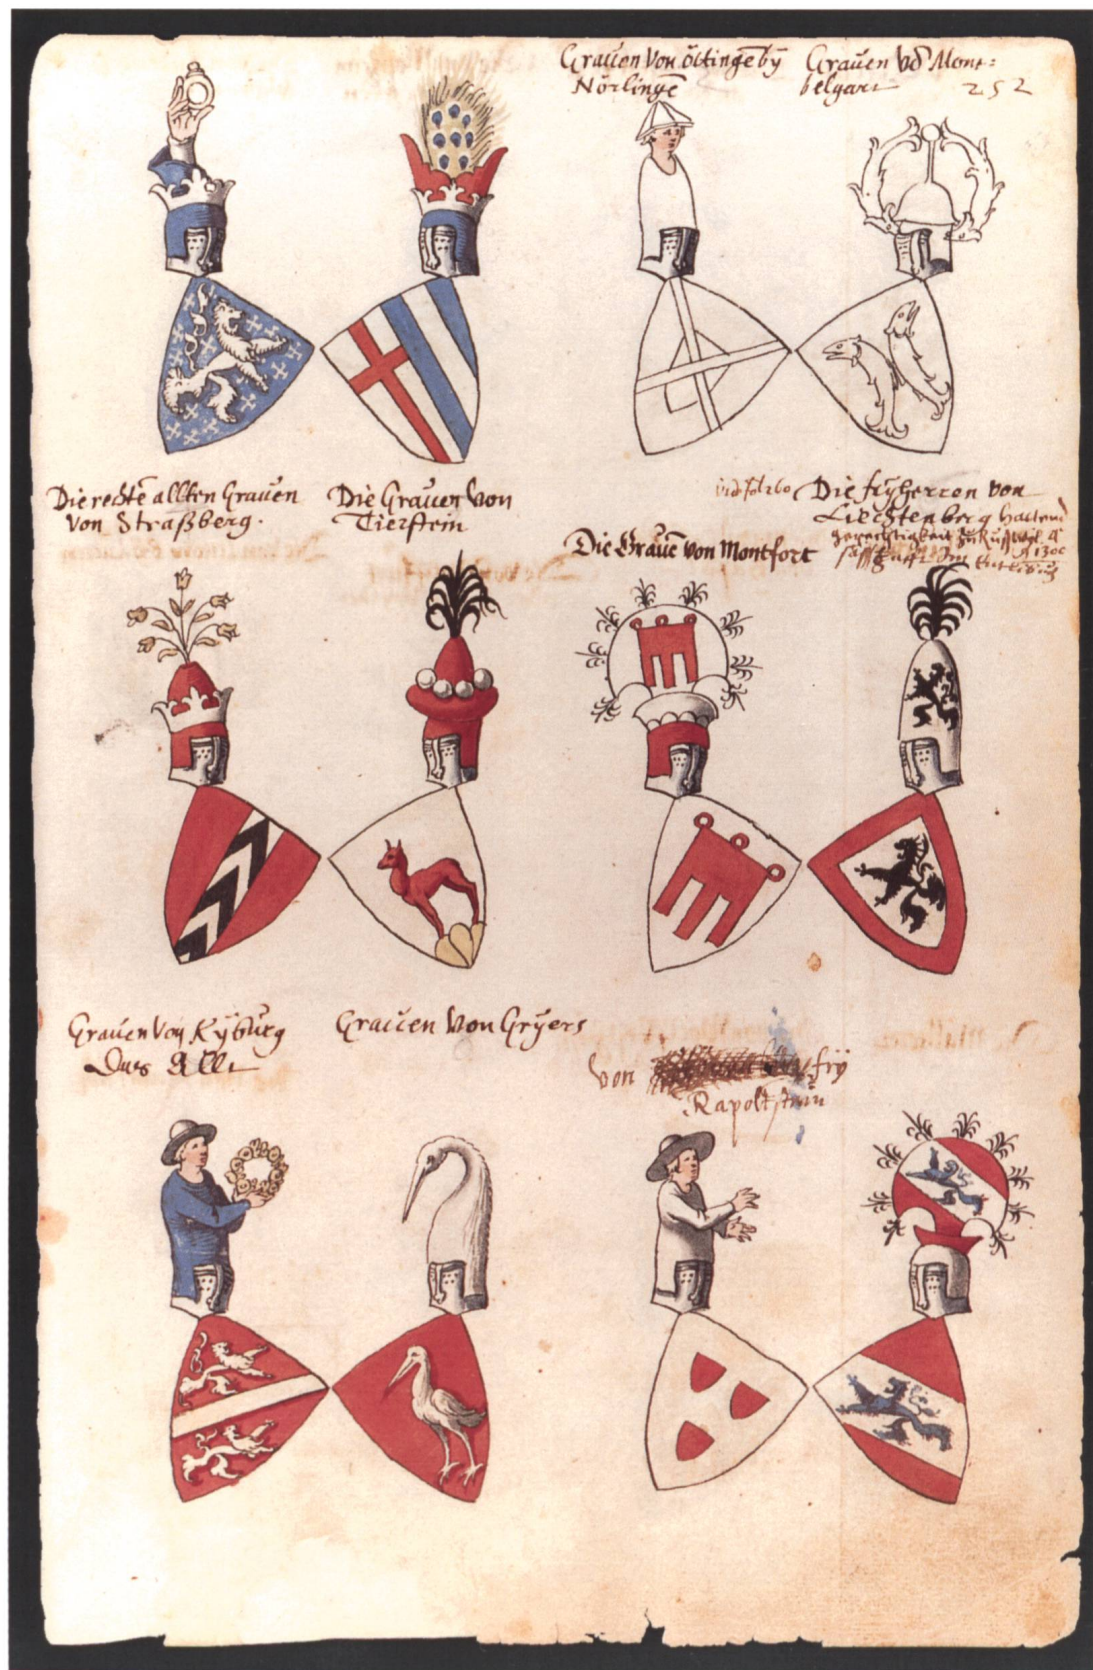 Grauen von Öttingē bÿ
Nörlingē
Grauen vō Mont=
belgart
252
Die rechtē allten Grauen
von Straßberg.
Die Grauen von
Tierstein
vid fol 260
Die fryherren von
Liechtenberg hattend
gerechtigkeit zu Ruffach
1300
Die Grauē von Montfort
Grauen von Kÿburg
Das Allt
Grauen von Grÿers
von frÿ
Rapoltstain